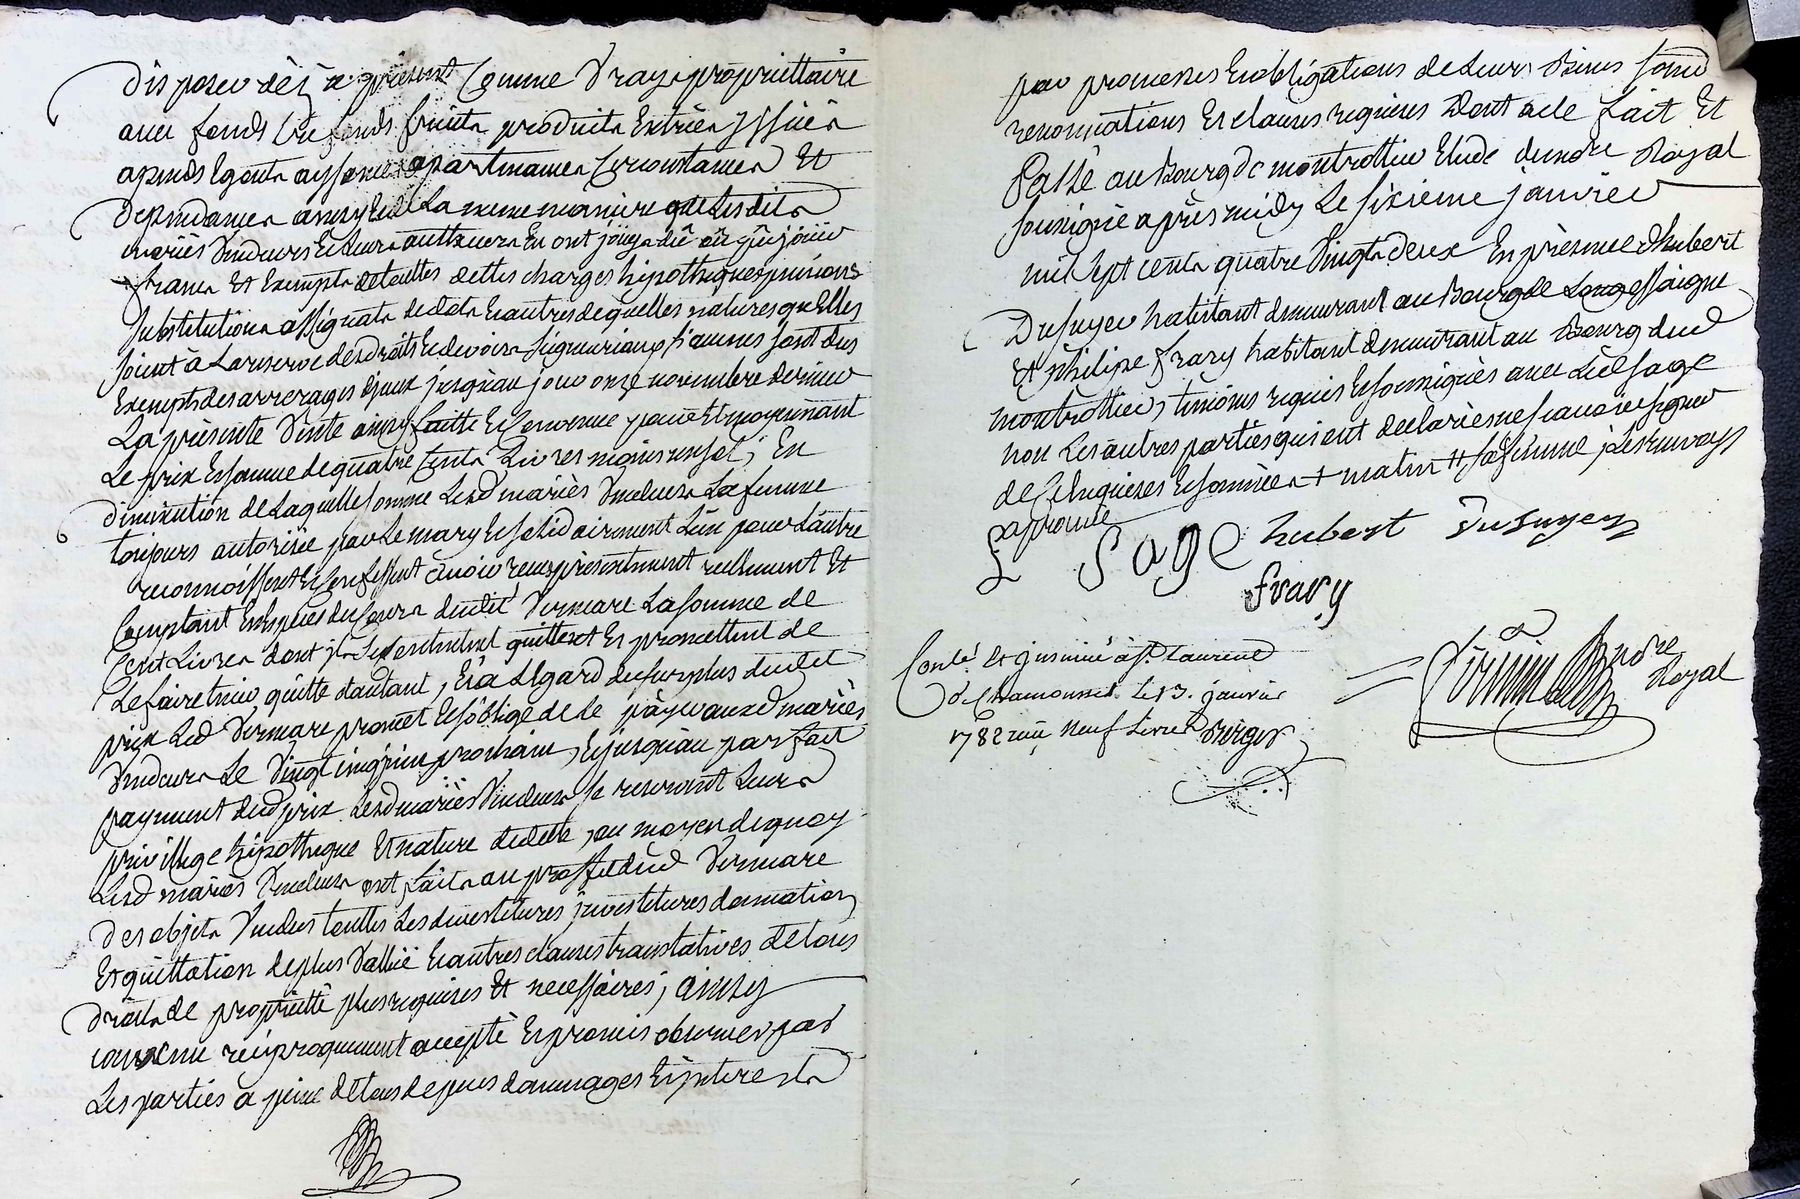 disposer dès a present Comme Vray propriettaire
avec fonds tres fonds fruits produits Entrées yssües
apends Egouts aysances apartenances Circonstances Et
dependances ainsy Et de La meme maniere que Lesdits
mariés Vendeurs Et Leurs autheurs En ont jöuy dû ou pû joüir
francs Et Exempts de touttes dettes charges hipotheques pensions
substitutions assignats de dots Et autres de quelles natures quElles
soient à La reserve des droits Et devoirs seigneuriaux si aucuns sont dus
Exempts des arrerages d'yceux jusqu'au jour onze novembre dernier
La présente Vente ainsy faitte Et Convenue pour Et moyennant
Le prix Et somme de quatre Cents Livres nigis ; En
diminution de Laquelle somme Lesd mariés Vendeurs La femme
toujours autorisée par Le mary Et solidairement L'un pour L'autre
reconnoissent Et Confessent avoir reçu présentement reellement Et
Comptant En Espèces du Cours dudit Vermare La somme de
Cent Livres dont ils Se Contentent quittent Et promettent de
Le faire tenir quitte d'autant, Et à L'Egard du surplus dudit
prix Led Vermare promet Et s'oblige de Le päyer auxd mariés
Vendeurs Le Vingt cinq juin prochain, Et jusqu'au parfait
payement dud prix Lesd mariés Vendeurs se reservent Leurs
privillege hipotheque Et nature de dette, au moyen de quoy
Lesd mariés Vendeurs ont fait au proffit dud Vermare
des objets Vendus touttes Les devestitures jnvestitures donnation
Et quittation de plus Vallüe Et autres clauses translatives de tous
droits de propriétté plus requises Et necessaires ; ainsy
convenu réciproquement accepté Et promis observer par
Les parties a peine de tous depens dommages Et jnterests
par promesses Et obligations de Leurs Biens soumissions
renonciations Et clauses requises Dont acte fait Et
Passé au Bourg de montrottier Etude du nore Royal
soussigné après midy Le sixieme janvier
mil sept cents quatre Vingts deux En présence d'hubert
Dusuyer habitant demeurant au Bourg de Longessaigne
Et philipe frary habitant demeurant au Bourg dud
montrottier, temoins requis Et soussignés avec Led sage
non Les autres parties qui ont declaré ne savoir signer
de Ce Enquises Et sommées + matin ++ sa femme ; Les renvoys
aprouvé
L Sage hubert Dusuyer
frary
Conté Et jnsinué à St Laurent
de Chamousset Le 13. janvier
1782 reçu neuf Livres Berger
nore
Royal